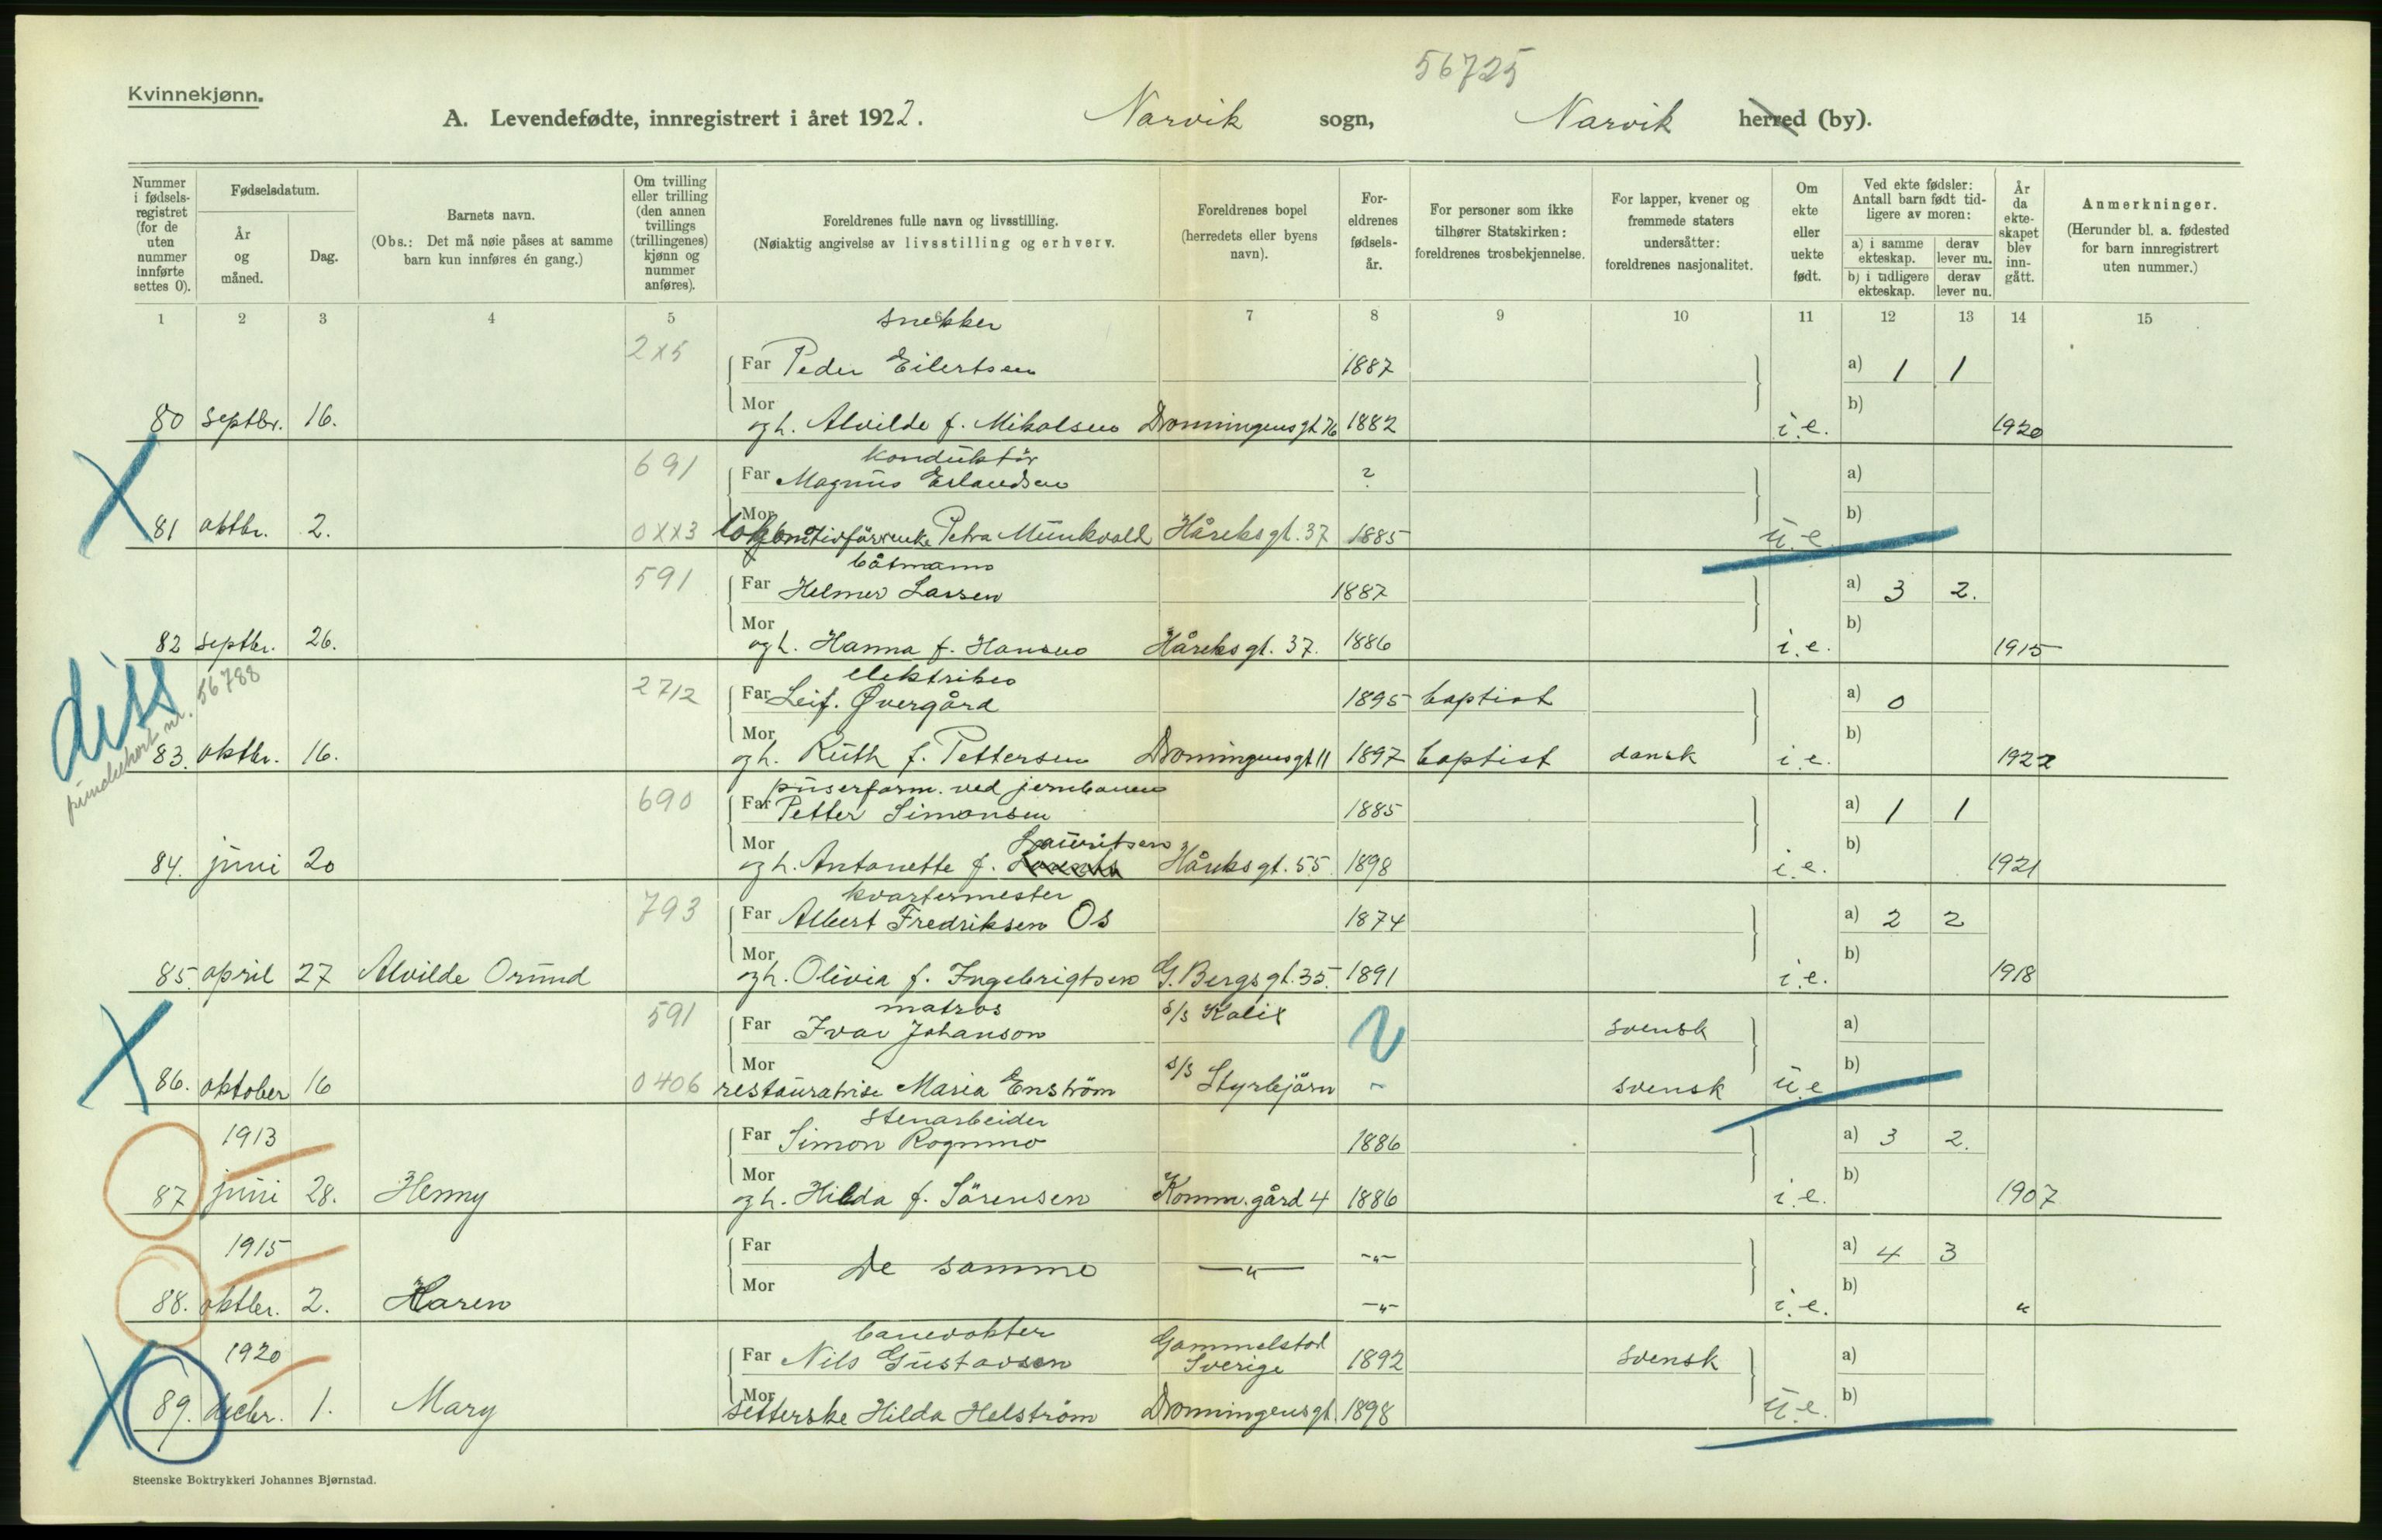 56725
Kvinnekjønn.
A. Levendefødte, innregistrert i året 1922. Narvik sogn, Narvik herred (by).
Nummer i fødsels-registret (for de uten nummer innførte settes 0).
Fødselsdatum.
År og måned.
Dag.
Barnets navn.
(Obs.: Det må nøie påses at samme barn kun innføres én gang.)
Om tvilling eller trilling (den annen tvillings (trillingenes) kjønn og nummer anføres).
Foreldrenes fulle navn og livsstilling.
(Nøiaktig angivelse av livsstilling og erhverv.
Foreldrenes bopel (herredets eller byens navn).
For-eldrenes fødsels-år.
For personer som ikke tilhører Statskirken: foreldrenes trosbekjennelse.
For lapper, kvener og fremmede staters undersåtter: foreldrenes nasjonalitet.
Om ekte eller uekte født.
Ved ekte fødsler: Antall barn født tid-ligere av moren:
a) i samme ekteskap.
derav lever nu.
b) i tidligere ekteskap.
derav lever nu.
År da ekte-skapet blev inn-gått.
Anmerkninger.
(Herunder bl. a. fødested for barn innregistrert uten nummer.)
1 2 3 4 5 6 7 8 9 10 11 12 13 14 15
snekker
2x5 Far Peder Eilertsen 1887 a) 1 1
80 septbr. 16. Mor og h. Alvilde f. Mikalsen Dronningensgt 76 1882 i.e. b) 1920
konduktör
691 Far Magnus Erlandsen ? a)
81 oktbr. 2. 0xx3 Mor Petra Munkvold Håreksgt. 37 1885 u.e. b)
båtmann
591 Far Helmer Larsen 1887 a) 3 2.
82 septbr. 26. Mor og h. Hanna f. Hansen Håreksgt. 37. 1886 i.e. b) 1915
diss
56788
elektriker
2712 Far Leif. Øvergård 1895 baptist a) 0
83. oktbr. 16. Mor og h. Ruth f. Pettersen Dronningensgt 11 1897 baptist dansk i.e. b) 1922
pusserform. ved jernbanen
690 Far Petter Simonsen 1885 a) 1 1
Lauritsen
84. juni 20 Mor og h. Antonette f. Håreksgt. 55 1898 i.e. b) 1921
kvartermester
793 Far Albert Fredriksen Os 1874 a) 2 2
85. april 27 Alvilde Orund Mor og h. Olivia f. Ingebrigtsen G. Bergsgt. 35. 1891 i.e. b) 1918
matros
591 Far Ivar Johanson s/s Kalix 2 svensk a)
86. oktober 16 0406 Mor restauratrise Maria Enström s/s Styrbjörn svensk u.e. b)
stenarbeider
1913 Far Simon Rognmo 1886 a) 3 2.
87 juni 28. Henny Mor og h. Hilda f. Sörensen Komm. gård 4 1886 i.e. b) 1907
1915 Far De samme —„— -„- a) 4 3
88. oktbr. 2. Karen Mor -„- i.e. b) „
banevokter
1920 Far Nils Gustavsen Gammelstad Sverige 1892 svensk a)
89. decbr. 1. Mary Mor setterske Hilda Helström Dronningensgt. 1898 u.e. b)
Steenske Boktrykkeri Johannes Bjørnstad.